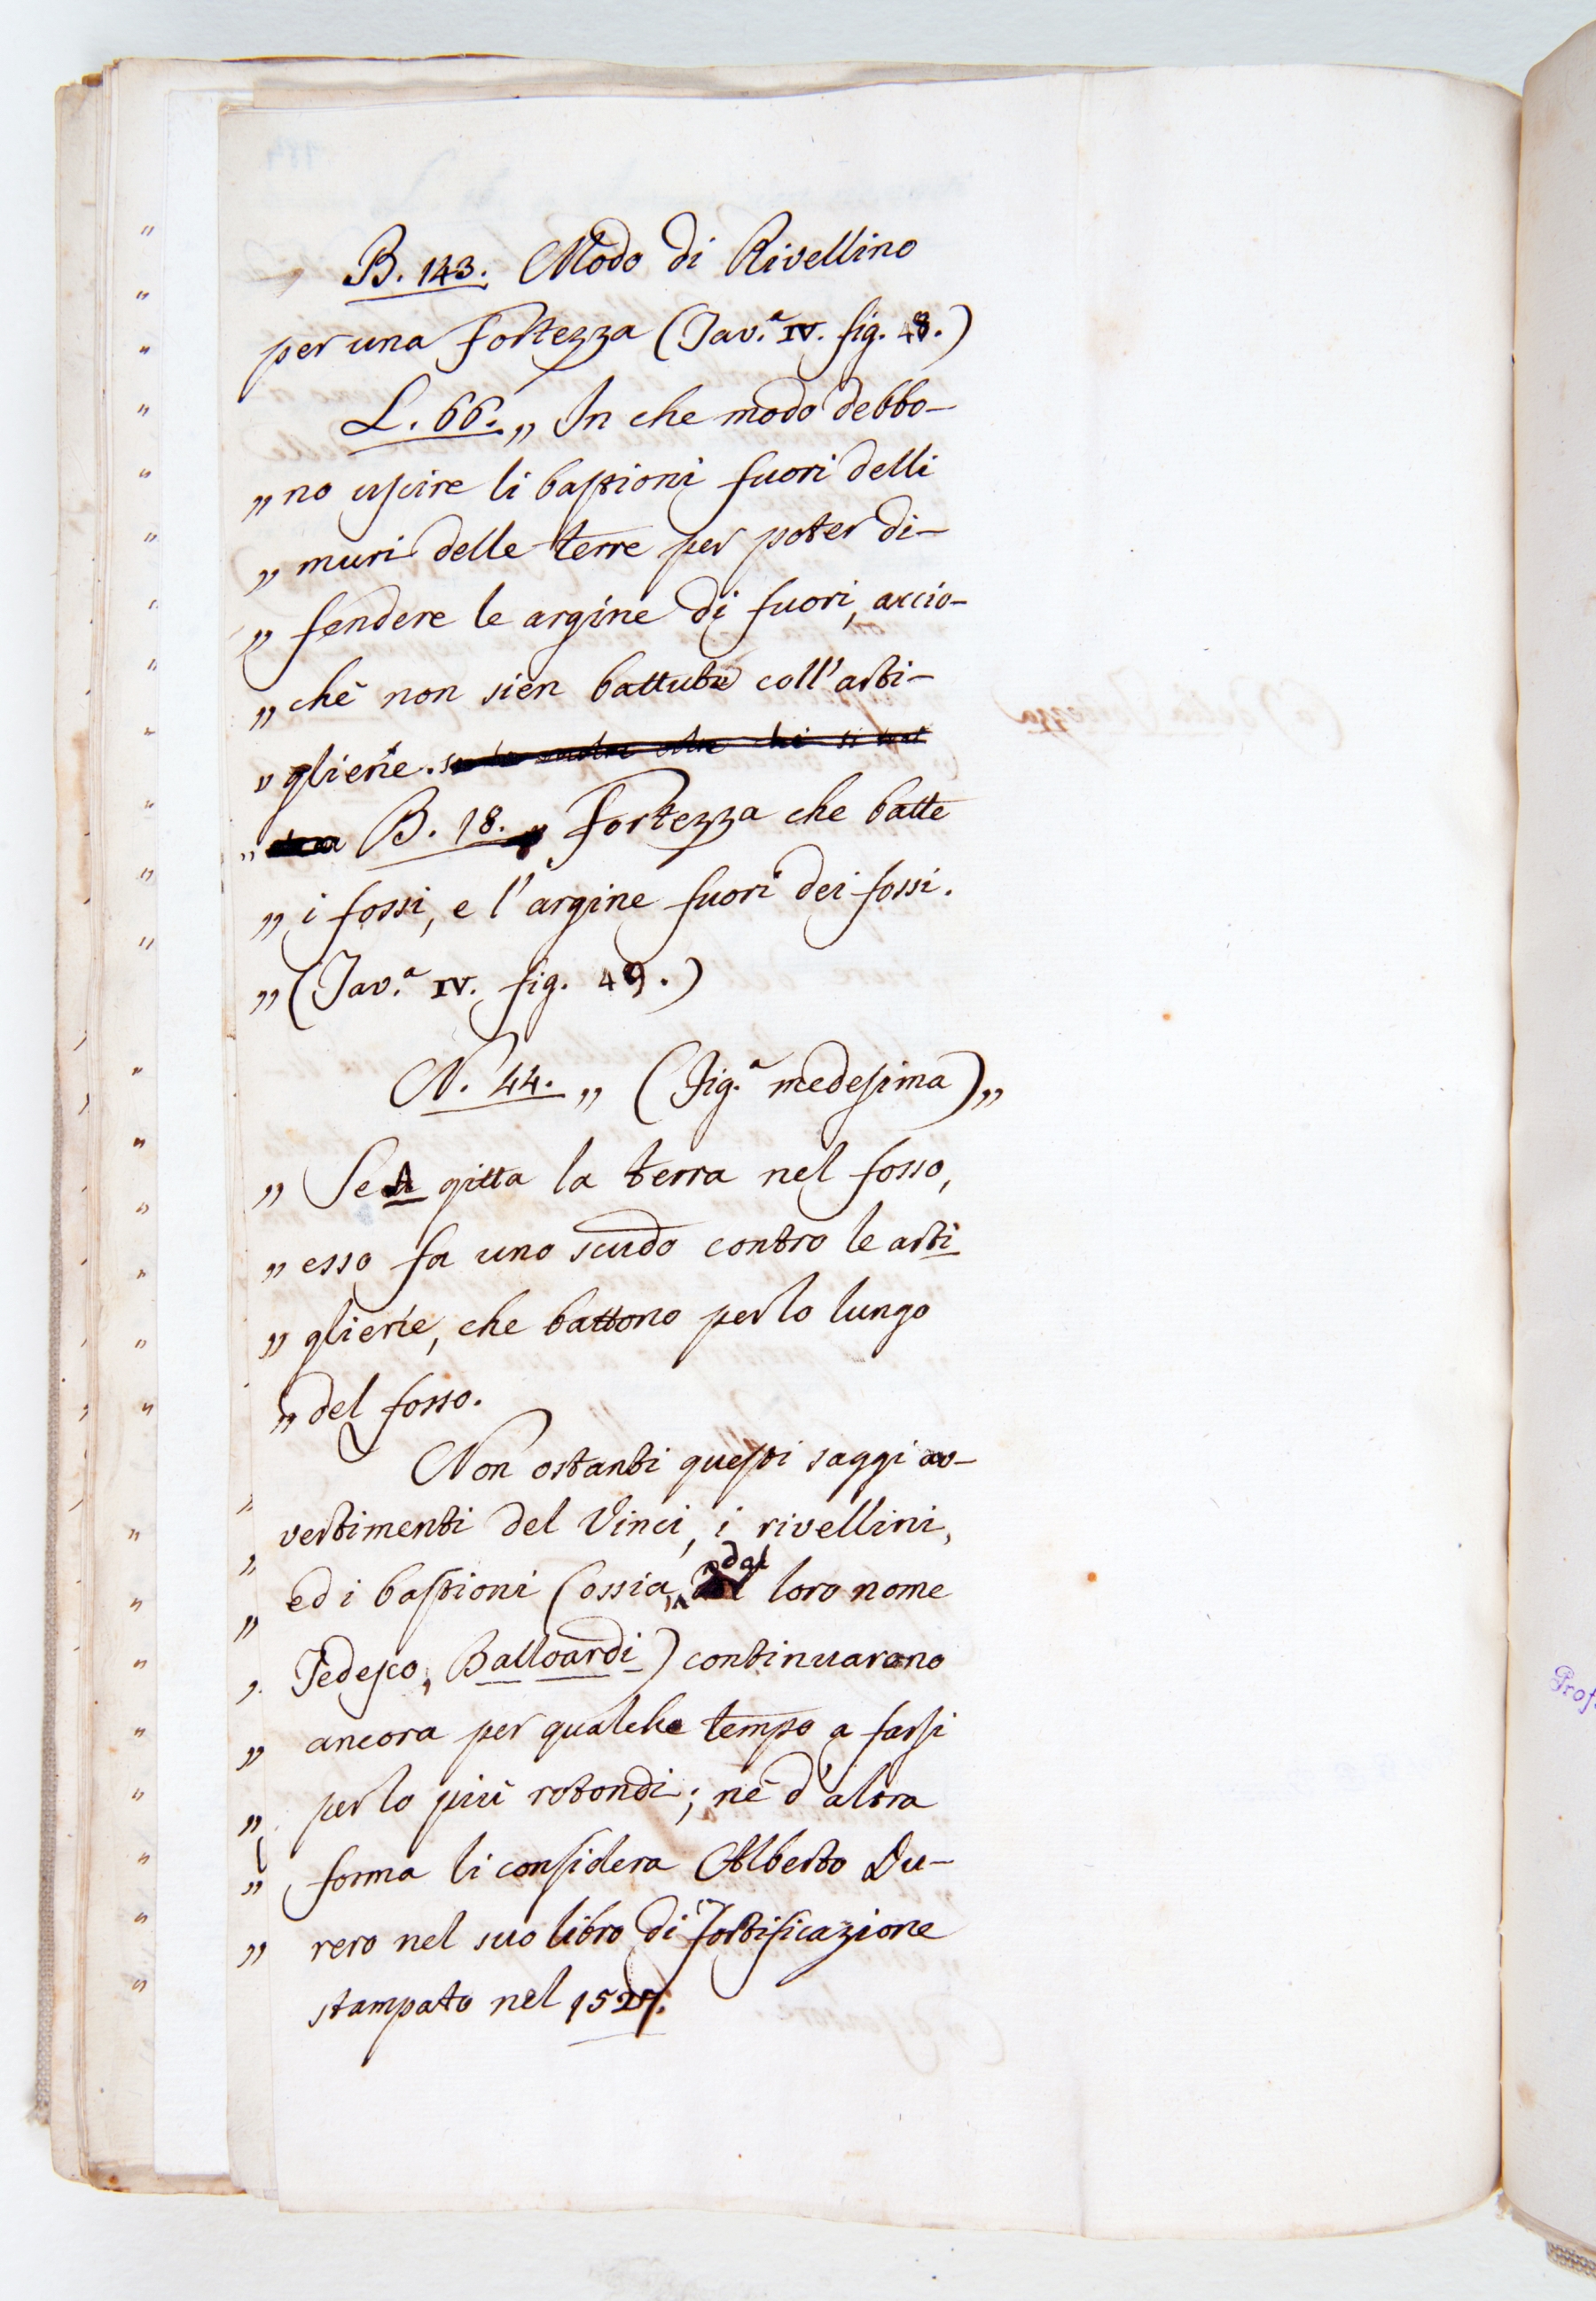 B. 143. Modo di Rivellino
per una Fortezza (Tav.ª IV. fig. 48.)
L. 66. „ In che modo debbo-
„ no uscire li bastioni fuori delli
„ muri delle terre per poter di-
„ fendere le argine di fuori, accio-
„ chè non sien battute coll'arti-
„ glierie.
„ B. 18. „ Fortezza che batte
„ i fossi, e l'argine fuori dei fossi.
„ (Tav.ª IV. fig. 49.)
N. 44. „ (Fig.ª medesima) „
„ Se A gitta la terra nel fosso,
„ esso fa uno scudo contro le arti
„ glierie, che battono per lo lungo
„ del fosso.
Non ostanti questi saggi av-
vertimenti del Vinci, i rivellini,
ed i bastioni (ossia, dal loro nome
Tedesco, Balloardi) continuarono
ancora per qualche tempo a farsi
per lo più rotondi; nè d'altra
forma li considera Alberto Du-
rero nel suo libro di Fortificazione
stampato nel 1527.